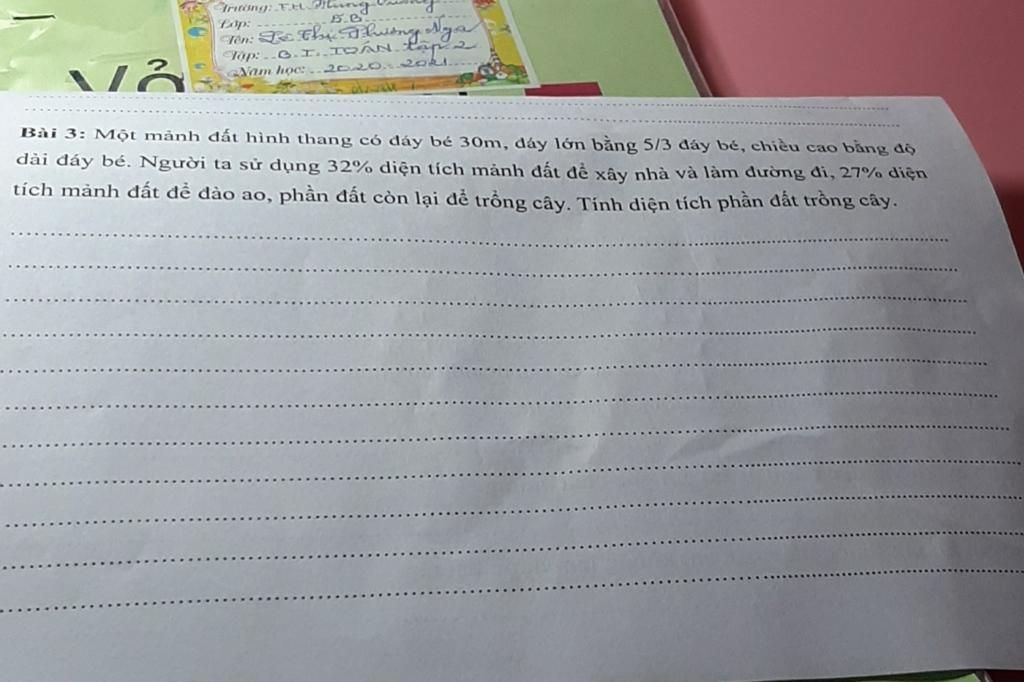 Trường: T.H Hùng Vương
Lớp: 5.B
Tên: Lê Thị Phương Nga
Tập: B.T. TOÁN tập 2
Năm học: 2020-2021
Vở
Bài 3: Một mảnh đất hình thang có đáy bé 30m, đáy lớn bằng 5/3 đáy bé, chiều cao bằng độ
dài đáy bé. Người ta sử dụng 32% diện tích mảnh đất để xây nhà và làm đường đi, 27% diện
tích mảnh đất để đào ao, phần đất còn lại để trồng cây. Tính diện tích phần đất trồng cây.